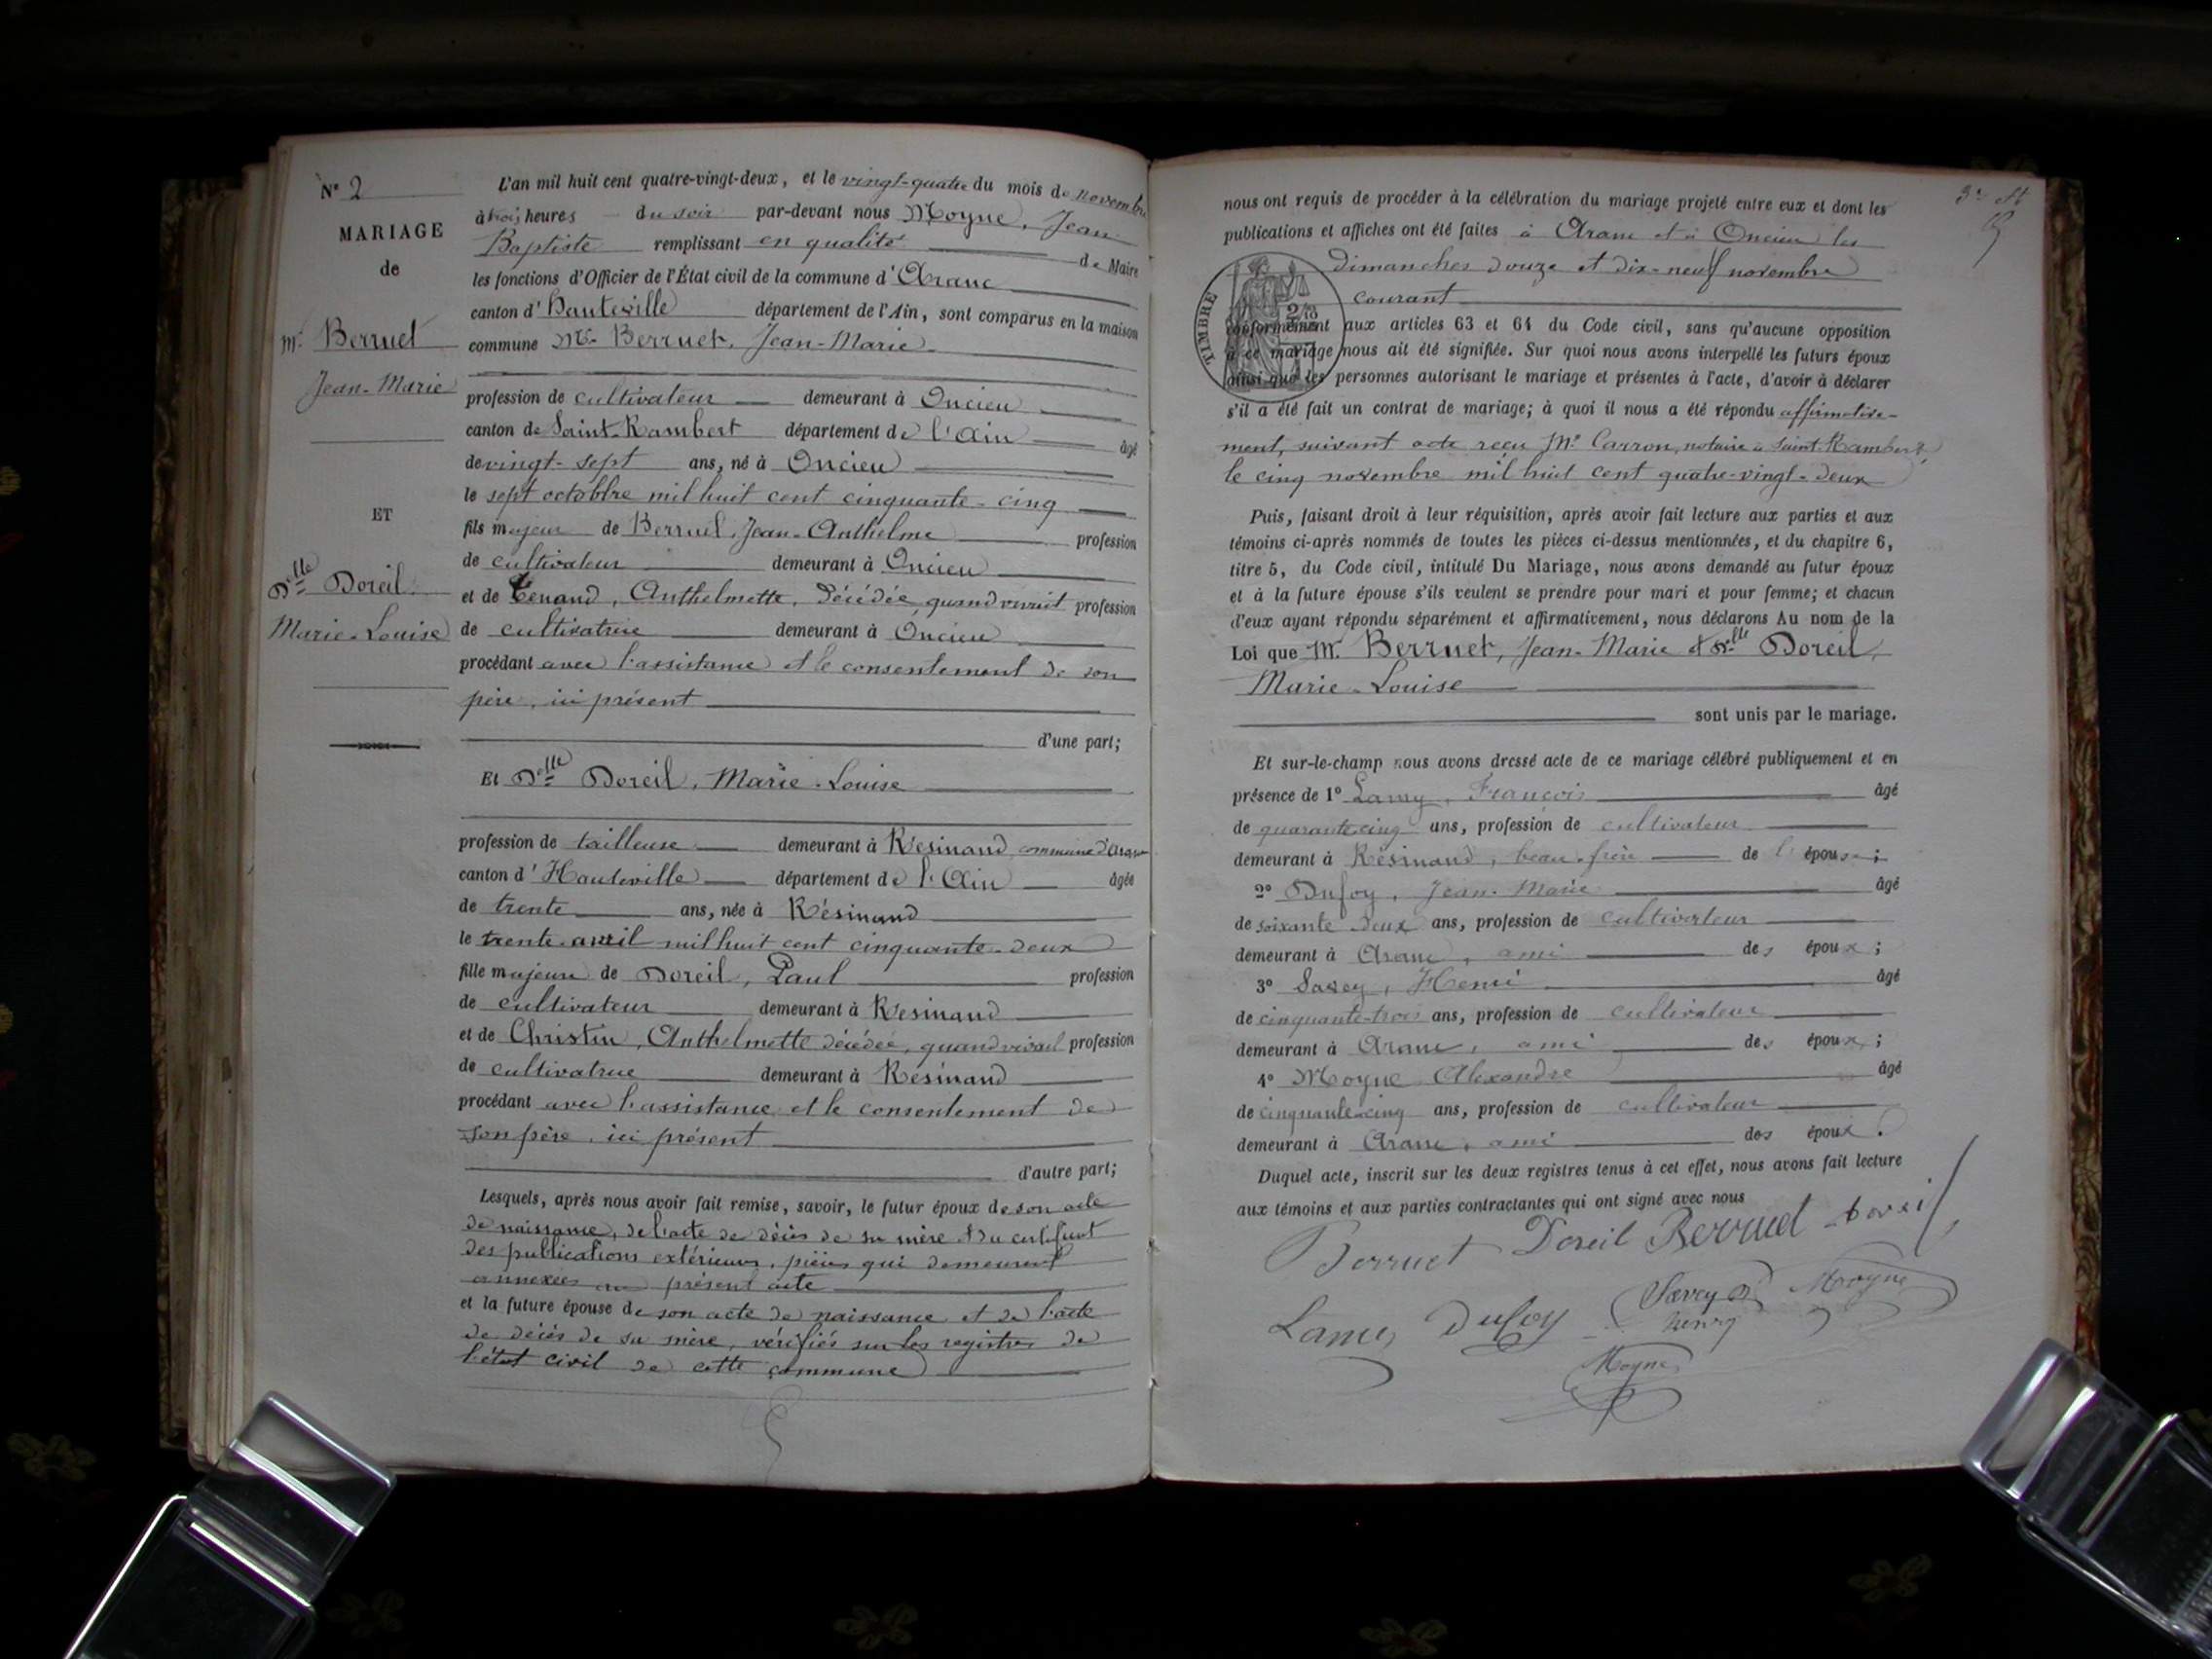 N° 2
MARIAGE
de
Mr. Berruet
Jean-Marie
ET
Delle Doreil
Marie-Louise
L'an mil huit cent quatre-vingt-deux, et le vingt-quatre du mois de novembre
à trois heures du soir par-devant nous Moyne, Jean
Baptiste remplissant en qualité de Maire
les fonctions d'Officier de l'État civil de la commune d'Aranc
canton d'Hauteville département de l'Ain, sont comparus en la maison
commune Mr. Berruet, Jean-Marie
profession de cultivateur demeurant à Oncieu
canton de Saint-Rambert département de l'Ain âgé
de vingt-sept ans, né à Oncieu
le sept octobbre mil huit cent cinquante-cinq
fils majeur de Berruet, Jean-Anthelme profession
de cultivateur demeurant à Oncieu
et de Tenand, Anthelmette, décédée, quand vivait profession
de cultivatrice demeurant à Oncieu
procédant avec l'assistance et le consentement de son
père, ici présent
d'une part;
Et Delle Doreil, Marie-Louise
profession de tailleuse demeurant à Résinand, commune d'Aranc
canton d'Hauteville département de l'Ain âgée
de trente ans, née à Résinand
le trente avril mil huit cent cinquante-deux
fille majeure de Doreil, Paul profession
de cultivateur demeurant à Résinand
et de Christin, Anthelmette décédée, quand vivait profession
de cultivatrice demeurant à Résinand
procédant avec l'assistance et le consentement de
son père, ici présent
d'autre part;
Lesquels, après nous avoir fait remise, savoir, le futur époux de son acte
de naissance, de l'acte de décès de sa mère et du certificat
des publications extérieures, pièces qui demeurent
annexées au présent acte
et la future épouse de son acte de naissance et de l'acte
de décès de sa mère, vérifiés sur les registres de
l'état civil de cette commune
nous ont requis de procéder à la célébration du mariage projeté entre eux et dont les
publications et affiches ont été faites à Aranc et à Oncieu les
dimanches douze et dix-neuf novembre
courant
TIMBRE
conformément aux articles 63 et 64 du Code civil, sans qu'aucune opposition
à ce mariage nous ait été signifiée. Sur quoi nous avons interpellé les futurs époux
ainsi que les personnes autorisant le mariage et présentes à l'acte, d'avoir à déclarer
s'il a été fait un contrat de mariage; à quoi il nous a été répondu affirmative-
ment, suivant acte reçu Me Carron, notaire à Saint-Rambert,
le cinq novembre mil huit cent quatre-vingt-deux
Puis, faisant droit à leur réquisition, après avoir fait lecture aux parties et aux
témoins ci-après nommés de toutes les pièces ci-dessus mentionnées, et du chapitre 6,
titre 5, du Code civil, intitulé Du Mariage, nous avons demandé au futur époux
et à la future épouse s'ils veulent se prendre pour mari et pour femme; et chacun
d'eux ayant répondu séparément et affirmativement, nous déclarons Au nom de la
Loi que Mr. Berruet, Jean-Marie et Delle Doreil,
Marie-Louise
sont unis par le mariage.
Et sur-le-champ nous avons dressé acte de ce mariage célébré publiquement et en
présence de 1° Lamy, François âgé
de quarante-cinq ans, profession de cultivateur
demeurant à Résinand, beau-frère de l'épouse;
2° Dufoy, Jean-Marie âgé
de soixante deux ans, profession de cultivateur
demeurant à Aranc, ami des époux;
3° Savey, Henri âgé
de cinquante-trois ans, profession de cultivateur
demeurant à Aranc, ami des époux;
4° Moyne Alexandre âgé
de cinquante-cinq ans, profession de cultivateur
demeurant à Aranc, ami des époux.
Duquel acte, inscrit sur les deux registres tenus à cet effet, nous avons fait lecture
aux témoins et aux parties contractantes qui ont signé avec nous
Berruet Doreil Berruet Doreil
Lamy Dufoy Savey henry Moyne
Moyne